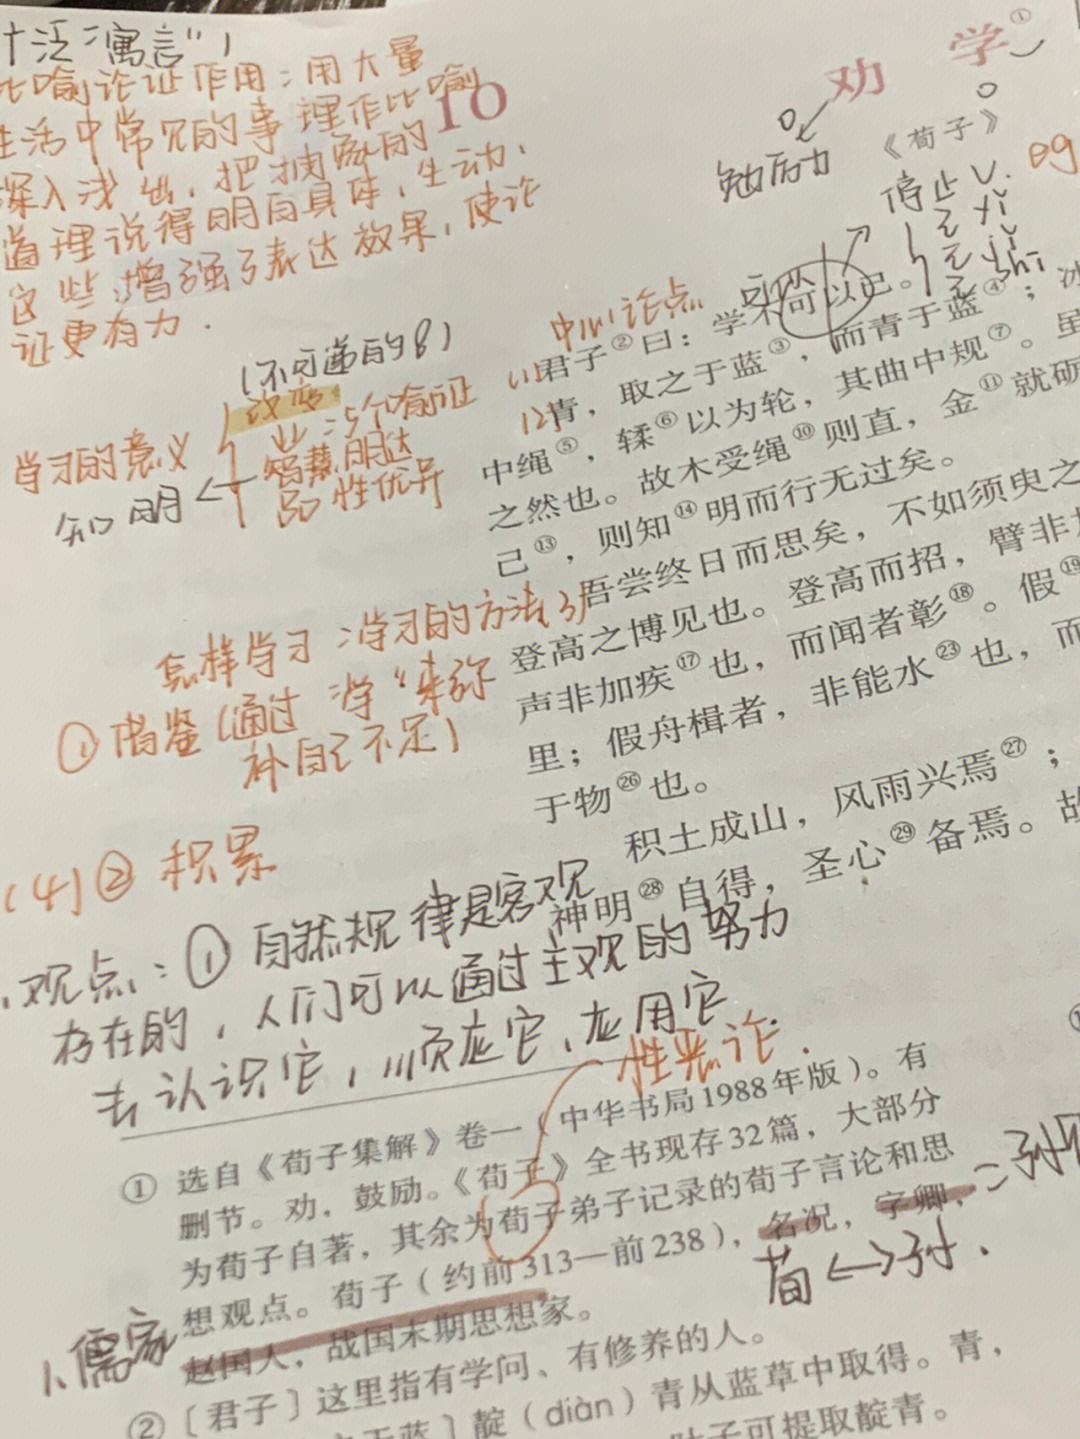 十泛“寓言”）
比喻论证作用：用大量
生活中常见的事理作比喻
深入浅出，把抽象的
道理说得明白具体，生动，
这些增强了表达效果，使论
证更有力．
10
劝学①
《荀子》
勉励
停止
yǐ
中心论点
君子②曰：学不可以已。
青，取之于蓝③，而青于蓝④；冰
中绳⑤，𫐓⑥以为轮，其曲中规⑦。虽
之然也。故木受绳⑩则直，金⑪就砺
己⑬，则知⑭明而行无过矣。
（不可递的8）
改变
：5个喻证
学习的意义
智慧明达
知明
品性优异
吾尝终日而思矣，不如须臾之
登高之博见也。登高而招，臂非加
声非加疾⑰也，而闻者彰⑱。假⑲
里；假舟楫者，非能水㉓也，而
于物㉖也。
怎样学习：学习的方法
①借鉴（通过“学”来弥
补自己不足）
积土成山，风雨兴焉㉗；
神明㉘自得，圣心㉙备焉。故
(4)②积累
观点：①自然规律是客观
存在的，人们可以通过主观的努力
去认识它，顺应它，应用它．
性恶论．
①选自《荀子集解》卷一（中华书局1988年版）。有
删节。劝，鼓励。《荀子》全书现存32篇，大部分
为荀子自著，其余为荀子弟子记录的荀子言论和思
想观点。荀子（约前313—前238），名况，字卿，
赵国人，战国末期思想家。
荀↔孙．
儒家
②［君子］这里指有学问、有修养的人。
之于蓝］靛（diàn）青从蓝草中取得。青，
叶子可提取靛青。